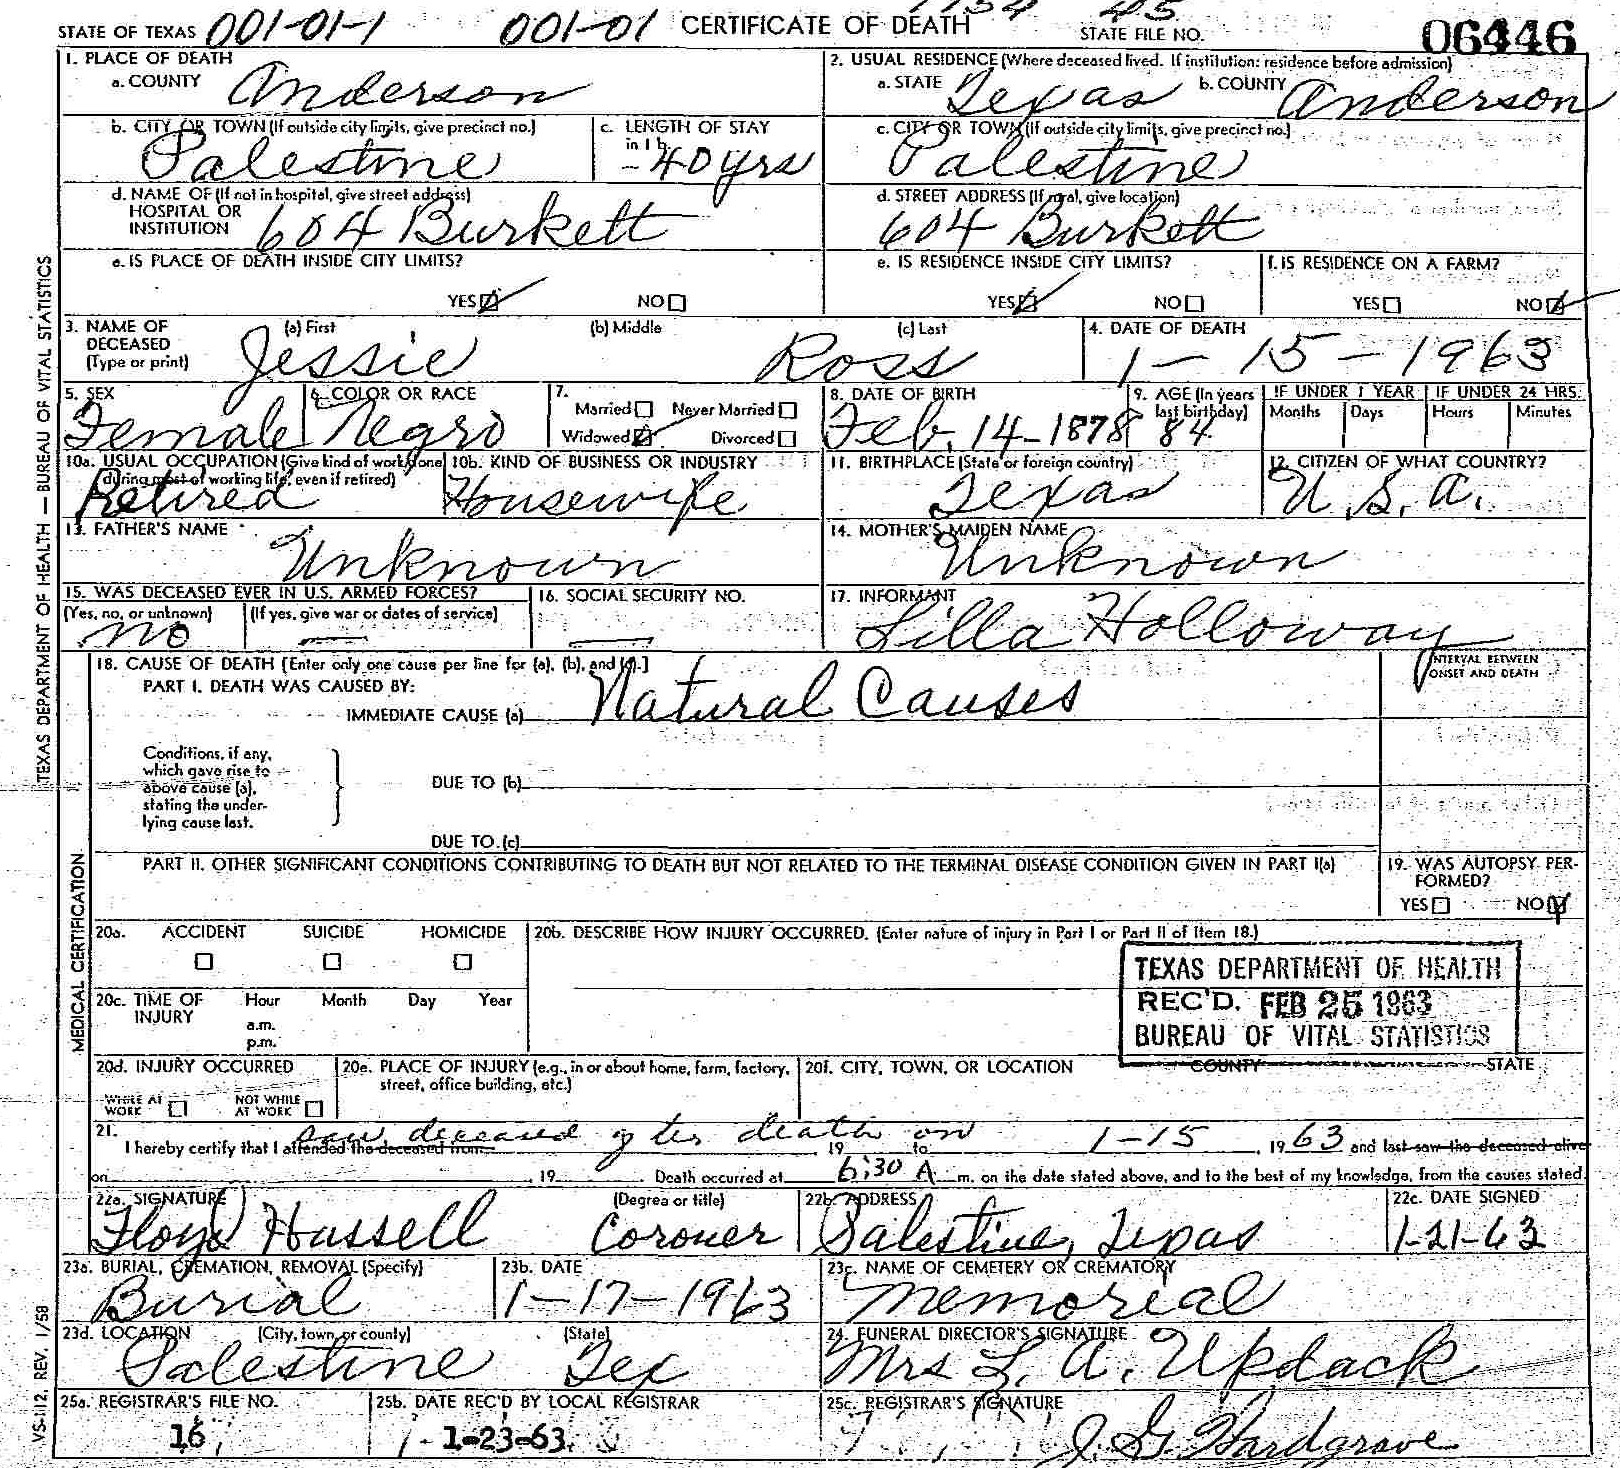 STATE OF TEXAS 001-01-1 001-01 CERTIFICATE OF DEATH STATE FILE NO. 45 06446
1. PLACE OF DEATH
a. COUNTY Anderson
2. USUAL RESIDENCE (Where deceased lived. If institution: residence before admission)
a. STATE Texas b. COUNTY Anderson
b. CITY OR TOWN (If outside city limits, give precinct no.) Palestine
c. LENGTH OF STAY in 1 b. 40 yrs
c. CITY OR TOWN (If outside city limits, give precinct no.) Palestine
d. NAME OF (If not in hospital, give street address) HOSPITAL OR INSTITUTION 604 Burkett
d. STREET ADDRESS (If rural, give location) 604 Burkett
e. IS PLACE OF DEATH INSIDE CITY LIMITS?
YES NO
e. IS RESIDENCE INSIDE CITY LIMITS?
YES NO
f. IS RESIDENCE ON A FARM?
YES NO
3. NAME OF DECEASED (Type or print) (a) First (b) Middle (c) Last
Jessie Ross
4. DATE OF DEATH
1-15-1963
5. SEX Female
6. COLOR OR RACE Negro
7. Married Never Married
Widowed Divorced
8. DATE OF BIRTH Feb. 14-1878
9. AGE (In years last birthday) 84
IF UNDER 1 YEAR Months Days
IF UNDER 24 HRS. Hours Minutes
10a. USUAL OCCUPATION (Give kind of work done during most of working life, even if retired) Retired
10b. KIND OF BUSINESS OR INDUSTRY Housewife
11. BIRTHPLACE (State or foreign country) Texas
12. CITIZEN OF WHAT COUNTRY? U.S.A.
13. FATHER'S NAME Unknown
14. MOTHER'S MAIDEN NAME Unknown
15. WAS DECEASED EVER IN U.S. ARMED FORCES?
(Yes, no, or unknown) (If yes, give war or dates of service)
no —
16. SOCIAL SECURITY NO. —
17. INFORMANT Lilla Holloway
18. CAUSE OF DEATH [Enter only one cause per line for (a), (b), and (c).]
PART I. DEATH WAS CAUSED BY:
IMMEDIATE CAUSE (a) Natural Causes
INTERVAL BETWEEN ONSET AND DEATH
Conditions, if any, which gave rise to above cause (a), stating the underlying cause last.
DUE TO (b)
DUE TO (c)
PART II. OTHER SIGNIFICANT CONDITIONS CONTRIBUTING TO DEATH BUT NOT RELATED TO THE TERMINAL DISEASE CONDITION GIVEN IN PART I(a)
19. WAS AUTOPSY PERFORMED?
YES NO
20a. ACCIDENT SUICIDE HOMICIDE
20b. DESCRIBE HOW INJURY OCCURRED. (Enter nature of injury in Part I or Part II of Item 18.)
20c. TIME OF INJURY Hour Month Day Year
a.m.
p.m.
TEXAS DEPARTMENT OF HEALTH
REC'D. FEB 25 1963
BUREAU OF VITAL STATISTICS
20d. INJURY OCCURRED
WHILE AT WORK NOT WHILE AT WORK
20e. PLACE OF INJURY (e.g., in or about home, farm, factory, street, office building, etc.)
20f. CITY, TOWN, OR LOCATION COUNTY STATE
21. saw deceased after death on 1-15
I hereby certify that I attended the deceased from 19 to , 1963 and last saw the deceased alive
on , 19 . Death occurred at 6:30 A m. on the date stated above, and to the best of my knowledge, from the causes stated.
22a. SIGNATURE (Degree or title)
Floyd Hassell Coroner
22b. ADDRESS Palestine, Texas
22c. DATE SIGNED 1-21-63
23a. BURIAL, CREMATION, REMOVAL (Specify) Burial
23b. DATE 1-17-1963
23c. NAME OF CEMETERY OR CREMATORY Memorial
23d. LOCATION (City, town, or county) (State)
Palestine Tex
24. FUNERAL DIRECTOR'S SIGNATURE
Mrs L. A. Updack
25a. REGISTRAR'S FILE NO. 16
25b. DATE REC'D BY LOCAL REGISTRAR 1-23-63
25c. REGISTRAR'S SIGNATURE J. G. Hardgrave
TEXAS DEPARTMENT OF HEALTH — BUREAU OF VITAL STATISTICS
MEDICAL CERTIFICATION
VS-112, REV. 1/58